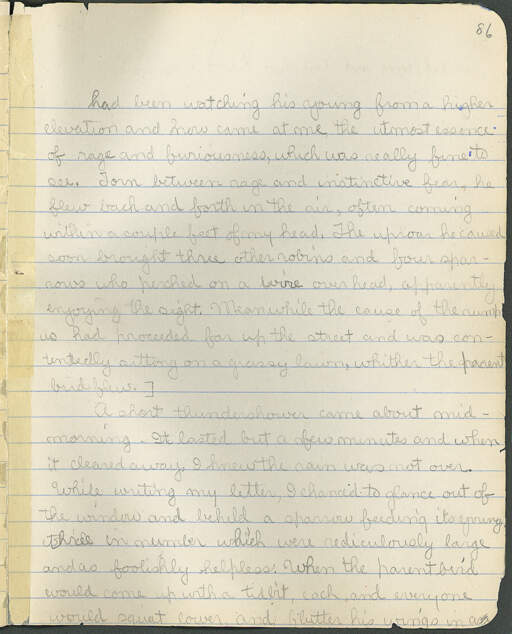 86
had been watching his young from a higher
elevation and now came at me the utmost essence
of rage and furiousness, which was really fine to
see. Torn between rage and instinctive fear, he
flew back and forth in the air, often coming
within a couple feet of my head. The uproar he caused
soon brought three other robins and four spar-
rows who perched on a wire overhead, apparently
enjoying the sight. Meanwhile the cause of the rump
us had proceeded far up the street and was con-
tentedly sitting on a grassy lawn, whither the parent
bird flew. ]
A short thundershower came about mid-
morning. It lasted but a few minutes and when
it cleared away, I knew the rain was not over.
While writing my letter, I chanced to glance out of
the window and beheld a sparrow feeding its young,
three in number which were rediculously large
and as foolishly helpless. When the parent bird
would come up with a tidbit, each, and everyone
would squat lower and flutter his wings in as